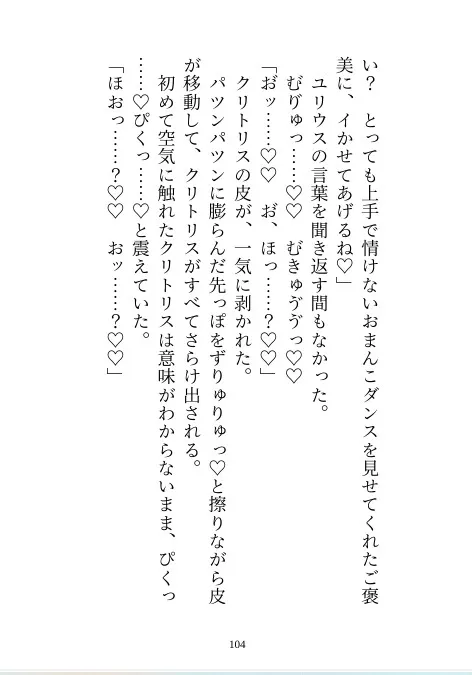 い？　とっても上手で情けないおまんこダンスを見せてくれたご褒
美に、イかせてあげるね♡」
　ユリウスの言葉を聞き返す間もなかった。
　むり゙ゅっ……♡♡　むきゅゔゔっ♡♡
「お゙ッ……♡♡　お゙、ほっ……？♡♡」
　クリトリスの皮が、一気に剥かれた。
　パツンパツンに膨らんだ先っぽをずりゅりゅっ♡と擦りながら皮
が移動して、クリトリスがすべてさらけ出される。
　初めて空気に触れたクリトリスは意味がわからないまま、ぴくっ
……♡ぴくっ……♡と震えていた。
「ほおっ……？♡♡　おッ……？♡♡」
104